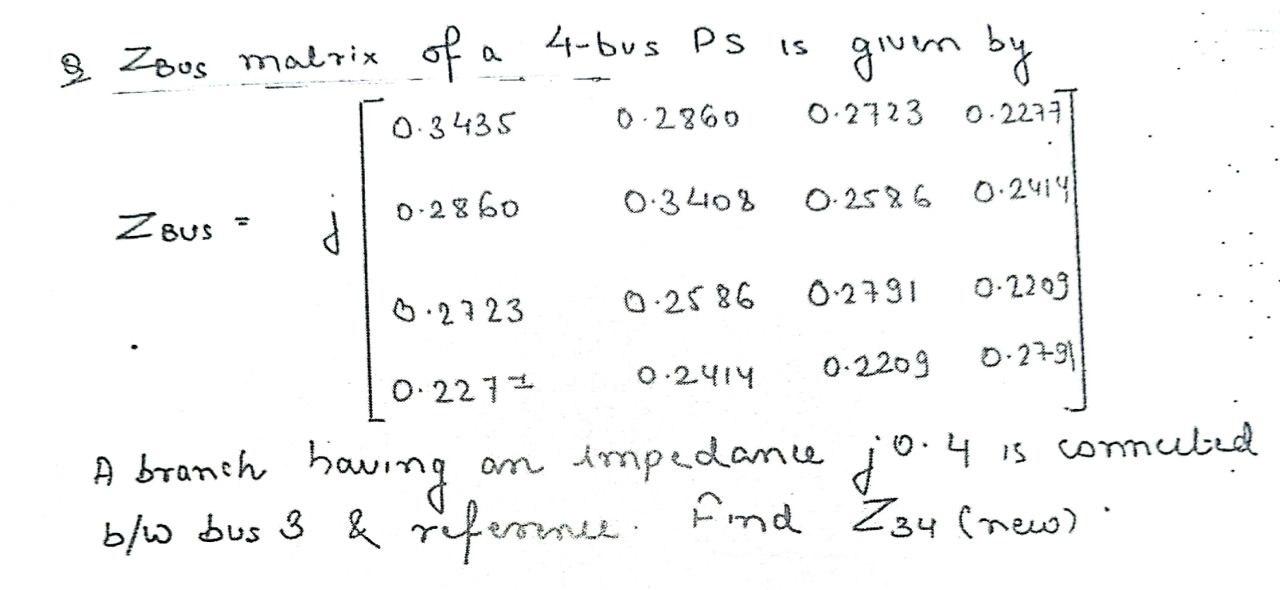 Q ZBus matrix of a 4-bus PS is given by
0.3435 0.2860 0.2723 0.2277
ZBUS = j 0.2860 0.3408 0.2586 0.2414
0.2723 0.2586 0.2791 0.2209
0.2277 0.2414 0.2209 0.2791
A branch having an impedance j0.4 is connected
b/w bus 3 & reference. Find Z34 (new).